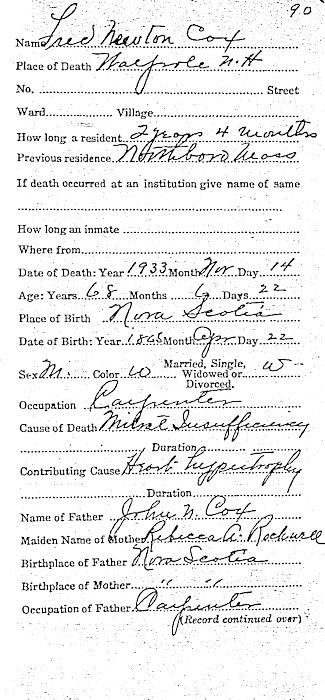 90
Name Fred Newton Cox
Place of Death Walpole N.H
No. Street
Ward Village
How long a resident 2 years 4 months
Previous residence Northboro Mass.
If death occurred at an institution give name of same
How long an inmate
Where from
Date of Death: Year 1933 Month Nov. Day 14
Age: Years 68 Months 6 Days 22
Place of Birth Nova Scotia
Date of Birth: Year 1865 Month Apr Day 22
Sex M. Color W Married, Single, Widowed or Divorced. W
Occupation Carpenter
Cause of Death Mitral Insufficiency
Duration
Contributing Cause Heart hypertrophy
Duration
Name of Father John N. Cox
Maiden Name of Mother Rebecca A. Rockwell
Birthplace of Father Nova Scotia
Birthplace of Mother " "
Occupation of Father Carpenter
(Record continued over)